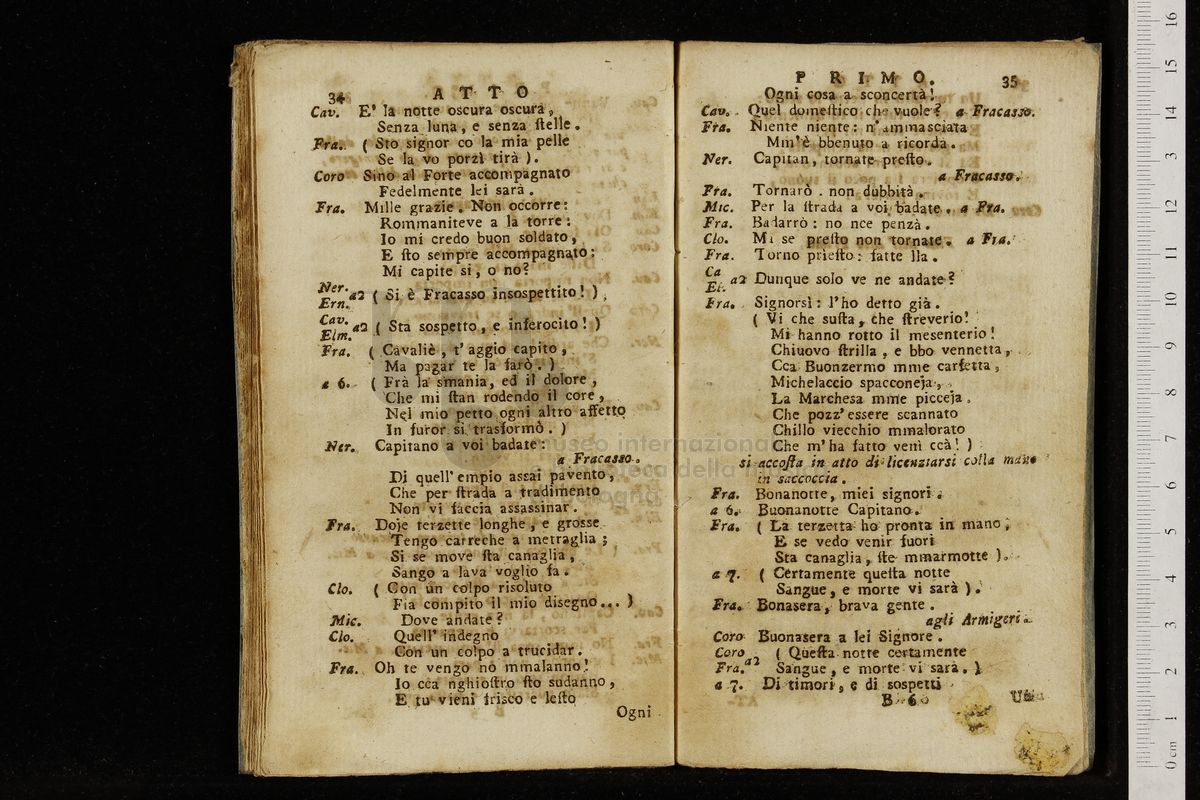 34 ATTO
Cav. E' la notte oscura oscura,
Senza luna, e senza ſtelle.
Fra. ( Sto signor co la mia pelle
Se la vo porzì tirà ).
Coro Sino al Forte accompagnato
Fedelmente lei sarà.
Fra. Mille grazie. Non occorre:
Rommaniteve a la torre:
Io mi credo buon soldato,
E ſto sempre accompagnato:
Mi capite si, o no?
Ner. Ern. a2 ( Si è Fracasso insospettito! )
Cav. Elm. a2 ( Sta sospetto, e inferocito! )
Fra. ( Cavaliè, t' aggio capito,
Ma pagar te la farò. )
a 6. ( Frà la smania, ed il dolore,
Che mi ſtan rodendo il core,
Nel mio petto ogni altro affetto
In furor si trasformò. )
Ner. Capitano a voi badate:
a Fracasso.
Di quell' empio assai pavento,
Che per ſtrada a tradimento
Non vi faccia assassinar.
Fra. Doje terzette longhe, e grosse
Tengo carreche a metraglia;
Si se move ſta canaglia,
Sango a lava voglio fa.
Clo. ( Con un colpo risoluto
Fia compito il mio disegno... )
Mic. Dove andate?
Clo. Quell' indegno
Con un colpo a trucidar.
Fra. Oh te vengo nò mmalanno!
Io cca nghioſtro ſto sudanno,
E tu vieni frisco e leſto
Ogni
PRIMO. 35
Ogni cosa a sconcertà!
Cav. Quel domeſtico che vuole? a Fracasso.
Fra. Niente niente: n' ammasciata
Mm'è bbenuto a ricorda.
Ner. Capitan, tornate preſto.
a Fracasso.
Fra. Tornarò. non dubbità.
Mic. Per la ſtrada a voi badate. a Fra.
Fra. Badarrò: no nce penzà.
Clo. Mi se preſto non tornate. a Fra.
Fra. Torno prieſto: fatte lla.
Ca El. a2 Dunque solo ve ne andate?
Fra. Signorsì: l'ho detto già.
( Vi che suſta, che ſtreverio!
Mi hanno rotto il mesenterio!
Chiuovo ſtrilla, e bbo vennetta,
Cca Buonzermo mme carfetta,
Michelaccio spacconeja,
La Marchesa mme picceja.
Che pozz' essere scannato
Chillo viecchio mmalorato
Che m'ha fatto venì ccà! )
si accoſta in atto di licenziarsi colla mano
in saccoccia.
Fra. Bonanotte, miei signori.
a 6. Buonanotte Capitano.
Fra. ( La terzetta ho pronta in mano,
E se vedo venir fuori
Sta canaglia, ſte mmarmotte ).
a 7. ( Certamente queſta notte
Sangue, e morte vi sarà ).
Fra. Bonasera, brava gente.
agli Armigeri.
Coro Buonasera a lei Signore.
Coro Fra. a2 ( Queſta notte certamente
Sangue, e morte vi sarà. )
a 7. Di timori, e di sospetti
B 6
museo internazionale
biblioteca della musica
di bologna